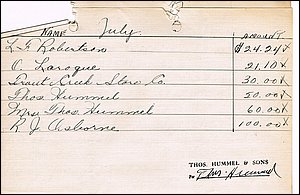 NAME July. AMOUNT
L F Robertson $24.24
O. Laroque 21.10
Trout Creek Store Co. 30.00
Thos Hummel 50.00
Mrs Thos. Hummel 60.00
R J Osborne 100.00
THOS. HUMMEL & SONS
Per Thos. Hummel